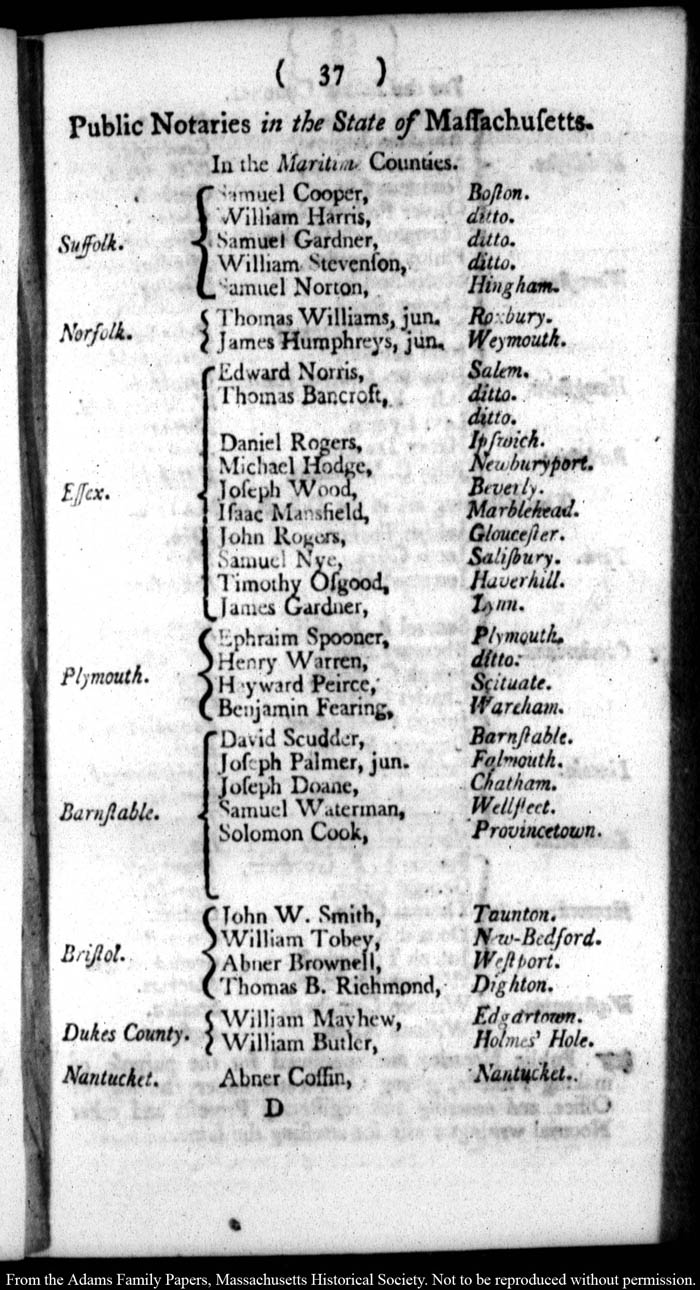 ( 37 )
Public Notaries in the State of Maſſachuſetts.
In the Maritime Counties.
Suffolk.
Samuel Cooper, Boſton.
William Harris, ditto.
Samuel Gardner, ditto.
William Stevenſon, ditto.
Samuel Norton, Hingham.
Norfolk.
Thomas Williams, jun. Roxbury.
James Humphreys, jun. Weymouth.
Eſſex.
Edward Norris, Salem.
Thomas Bancroft, ditto.
ditto.
Daniel Rogers, Ipſwich.
Michael Hodge, Newburyport.
Joſeph Wood, Beverly.
Iſaac Mansfield, Marblehead.
John Rogers, Glouceſter.
Samuel Nye, Saliſbury.
Timothy Oſgood, Haverhill.
James Gardner, Lynn.
Plymouth.
Ephraim Spooner, Plymouth.
Henry Warren, ditto.
Hayward Peirce, Scituate.
Benjamin Fearing, Wareham.
Barnſtable.
David Scudder, Barnſtable.
Joſeph Palmer, jun. Falmouth.
Joſeph Doane, Chatham.
Samuel Waterman, Wellfleet.
Solomon Cook, Provincetown.
Briſtol.
John W. Smith, Taunton.
William Tobey, New-Bedford.
Abner Brownell, Weſtport.
Thomas B. Richmond, Dighton.
Dukes County.
William Mayhew, Edgartown.
William Butler, Holmes' Hole.
Nantucket. Abner Coffin, Nantucket.
D
From the Adams Family Papers, Massachusetts Historical Society. Not to be reproduced without permission.